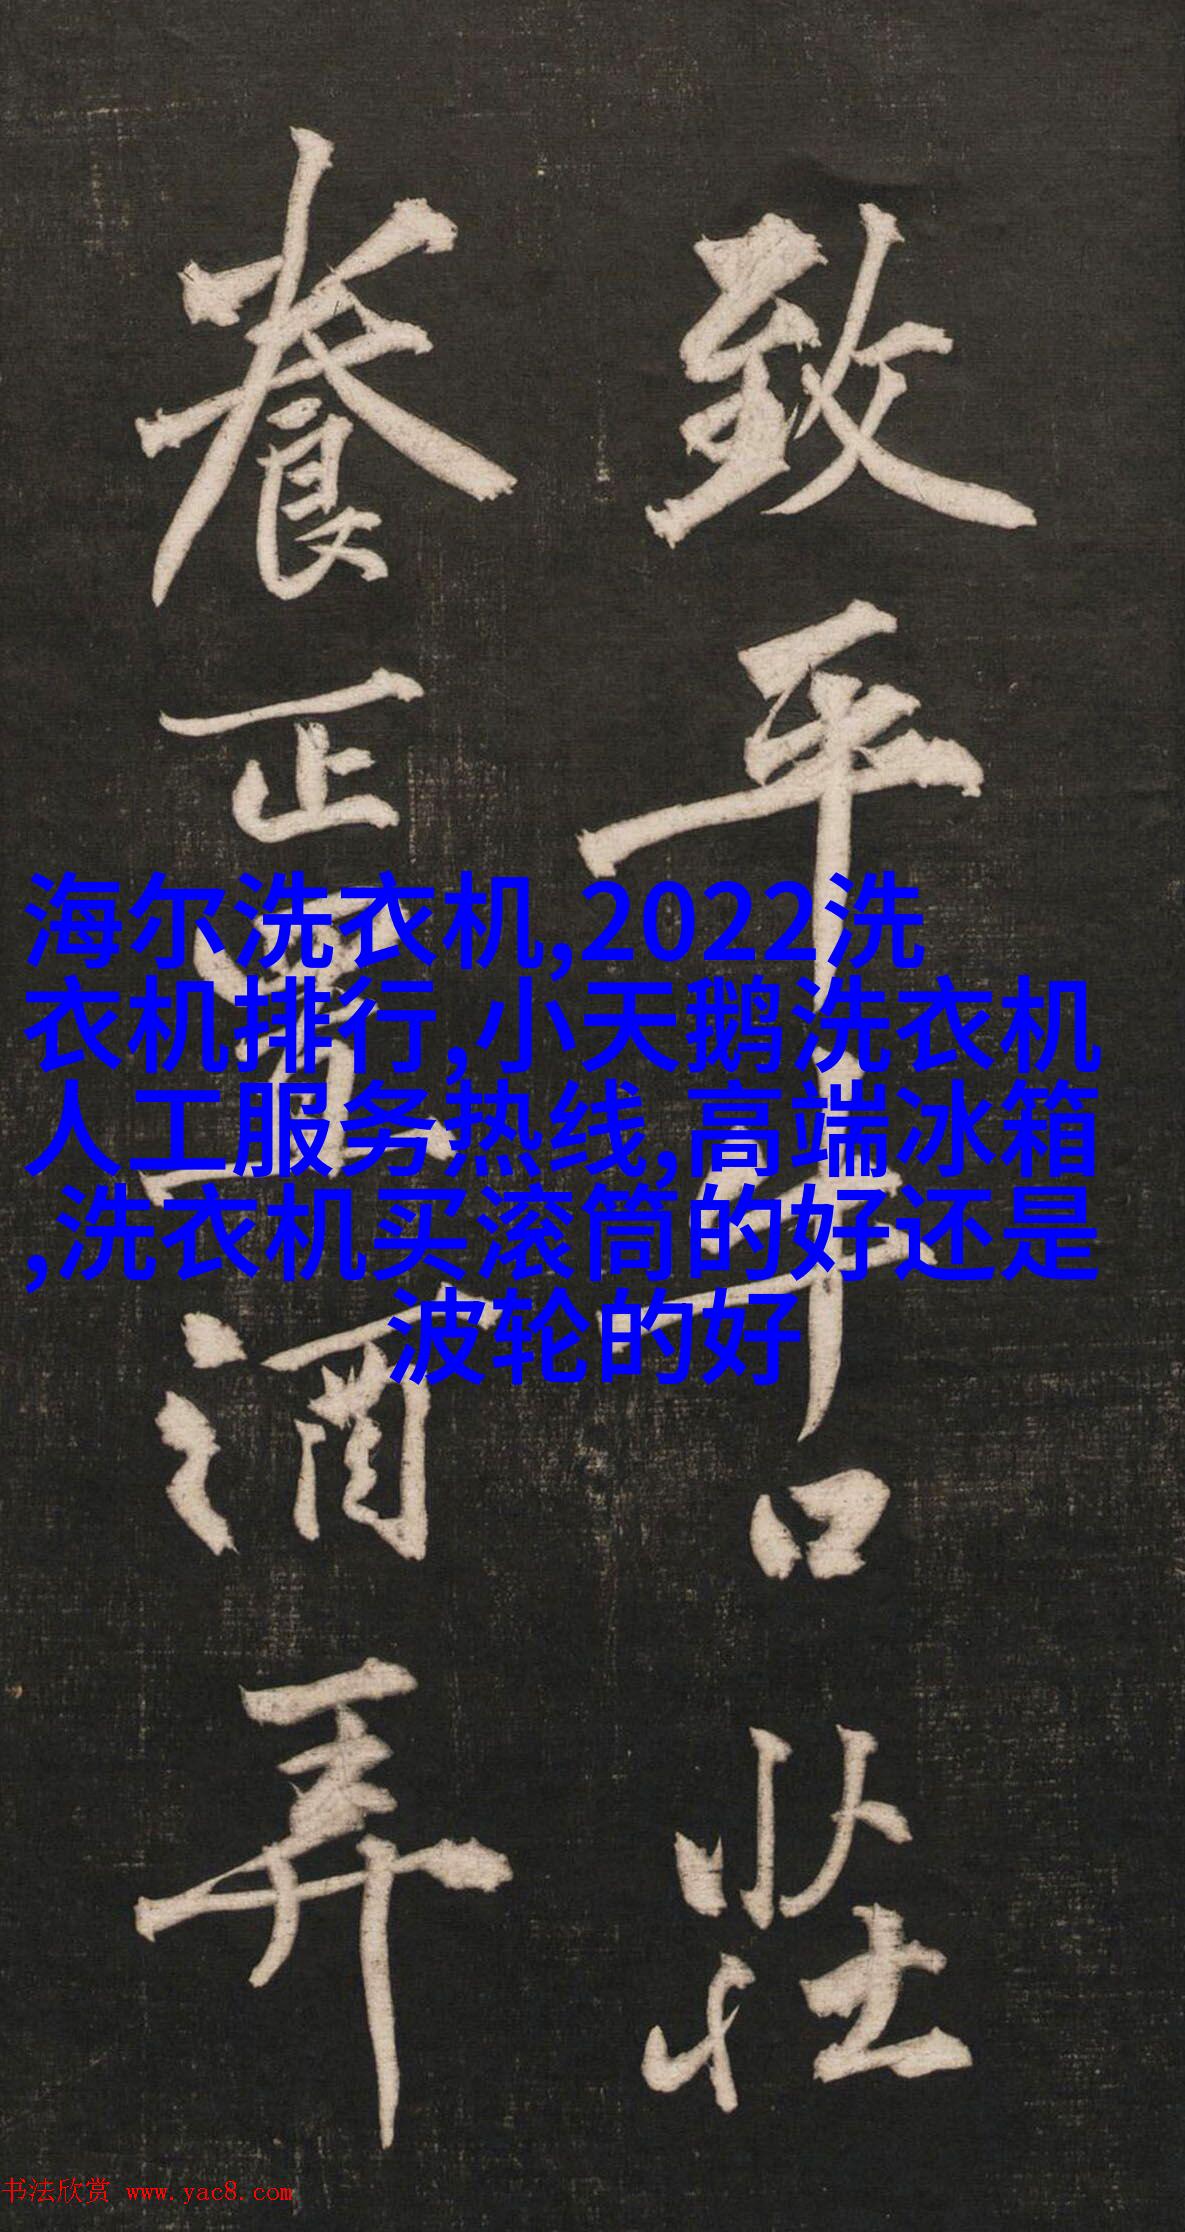 海尔洗衣机,2022洗
衣机排行,小天鹅洗衣机
人工服务热线,高端冰箱
,洗衣机买滚筒的好还是
波轮的好
致平
養正置酒弄
书法欣赏 www.yac8.com